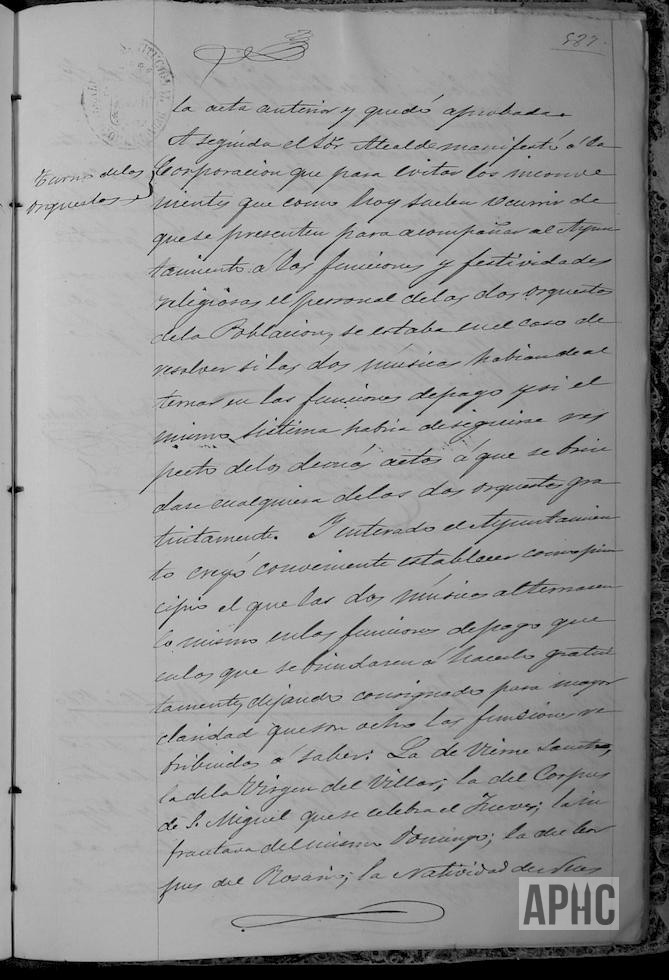 587.
la acta anterior y quedó aprobada.
A seguida el Sor. Alcalde manifestó á la
Turno de las
orquestas
Corporacion que para evitar los inconve
nientes que como hoy suelen ocurrir de
que se presenten para acompañar al Ayun
tamiento á las funciones y festividades
religiosas el personal de las dos orquestas
de la Poblacion, se estaba en el caso de
resolver si las dos músicas habian de al
ternar en las funciones de pago y si el
mismo sistema habria de seguirse res
pecto de los demás actos á que se brin
dase cualquiera de las dos orquestas gra
tuitamente. Enterado el Ayuntamien
to creyó conveniente establecer como prin
cipio el que las dos músicas alternasen
lo mismo en las funciones de pago que
en las que se brindaren á hacerlo gratui
tamente, dejando consignado para mayor
claridad que son ocho las funciones re
tribuidas á saber: La de Vierne Santo,
la de la Virgen del Villar; la del Corpus
de S. Miguel que se celebra el Jueves; la in
fraoctava del mismo Domingo; la del Cor
pus del Rosario; la Natividad de Nues
APHC